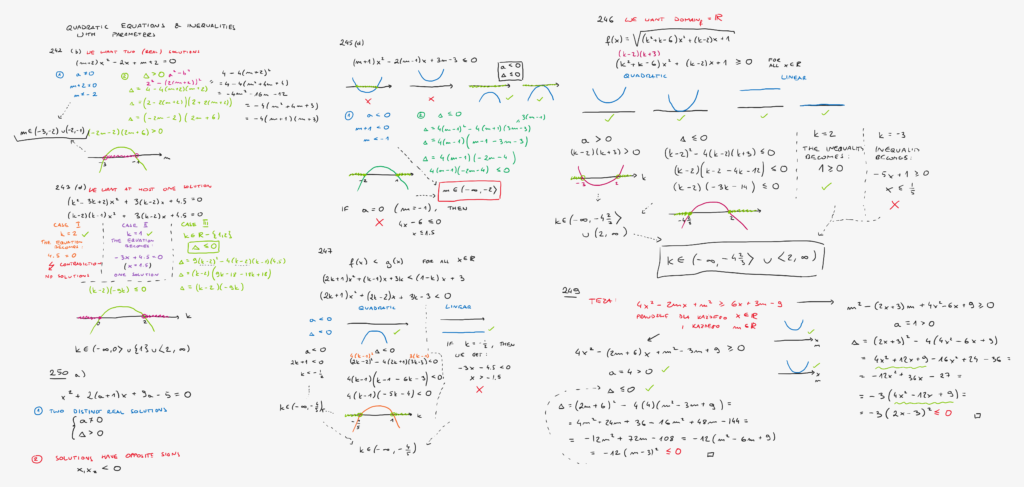 QUADRATIC EQUATIONS & INEQUALITIES
WITH PARAMETERS
242 (b) WE WANT TWO (REAL) SOLUTIONS
(m+2)x² - 2x + m+2 = 0
① a ≠ 0
m+2 ≠ 0
m ≠ -2
② Δ > 0
Δ = 4 - 4(m+2)(m+2)
Δ = (2-2(m+2))(2+2(m+2))
Δ = (-2m-2)(2m+6)
(-2m-2)(2m+6) > 0
4 - 4(m+2)²
= 4 - 4(m²+4m+4)
= -4m² - 16m - 12
= -4(m²+4m+3)
= -4(m+1)(m+3)
m ∈ (-3,-2) ∪ (-2,-1)
-3 -1 m
243 (d) WE WANT AT MOST ONE SOLUTION
(k² - 3k+2)x² + 3(k-2)x + 4.5 = 0
(k-2)(k-1)x² + 3(k-2)x + 4.5 = 0
CASE I
k = 2
THE EQUATION
BECOMES:
4.5 = 0
CONTRADICTION
NO SOLUTIONS
CASE II
k = 1
THE EQUATION
BECOMES:
-3x + 4.5 = 0
(x = 1.5)
ONE SOLUTION
CASE III
k ∈ R - {1,2}
Δ ≤ 0
Δ = 9(k-2)² - 4(k-2)(k-1)(4.5)
Δ = (k-2)(9k-18-18k+18)
Δ = (k-2)(-9k)
(k-2)(-9k) ≤ 0
0 2 k
k ∈ (-∞,0⟩ ∪ {1} ∪ ⟨2,∞)
250 a)
x² + 2(a+1)x + 9a - 5 = 0
① TWO DISTINCT REAL SOLUTIONS
a ≠ 0
Δ > 0
② SOLUTIONS HAVE OPPOSITE SIGNS
x₁x₂ < 0
245 (d)
(m+1)x² - 2(m-1)x + 3m-3 ≤ 0
a < 0
Δ ≤ 0
① a < 0
m+1 < 0
m < -1
② Δ ≤ 0
Δ = 4(m-1)² - 4(m+1)(3m-3)
3(m-1)
Δ = 4(m-1)(m-1-3m-3)
Δ = 4(m-1)(-2m-4)
4(m-1)(-2m-4) ≤ 0
-2 1
m ∈ (-∞,-2⟩
IF a = 0 (m = -1), THEN
4x - 6 ≤ 0
x ≤ 1.5
247
f(x) < g(x) FOR ALL x ∈ R
(2k+1)x² + (k-1)x + 3k < (1-k)x + 3
(2k+1)x² + (2k-2)x + 3k-3 < 0
QUADRATIC
LINEAR
a < 0
Δ < 0
a < 0
2k+1 < 0
k < -½
Δ < 0
(2k-2)² - 4(2k+1)(3k-3) < 0
4(k-1)(k-1-6k-3) < 0
4(k-1)(-5k-4) < 0
k
k ∈ (-∞,-4/5)
IF k = -½, THEN
WE GET:
-3x - 4.5 < 0
x > -1.5
246 WE WANT DOMAIN = R
f(x) = √((k²+k-6)x² + (k-2)x + 1)
(k-2)(k+3)
(k²+k-6)x² + (k-2)x + 1 ≥ 0 FOR ALL x∈R
QUADRATIC
LINEAR
a > 0
(k-2)(k+3) > 0
-3 2 k
Δ ≤ 0
(k-2)² - 4(k-2)(k+3) ≤ 0
(k-2)(k-2-4k-12) ≤ 0
(k-2)(-3k-14) ≤ 0
2 k
k = 2
THE INEQUALITY
BECOMES:
1 ≥ 0
k = -3
INEQUALITY
BECOMES:
-5x + 1 ≥ 0
x ≤ 1/5
k ∈ (-∞,-4⅔⟩
∪ (2,∞)
k ∈ (-∞,-4⅔⟩ ∪ ⟨2,∞)
249
TEZA: 4x² - 2mx + m² ≥ 6x + 3m - 9
PRAWDZIWE DLA KAŻDEGO x∈R
I KAŻDEGO m∈R
4x² - (2m+6)x + m² - 3m + 9 ≥ 0
a = 4 > 0
Δ ≤ 0
Δ = (2m+6)² - 4(4)(m²-3m+9) =
= 4m² + 24m + 36 - 16m² + 48m - 144 =
= -12m² + 72m - 108 = -12(m² - 6m + 9)
= -12(m-3)² ≤ 0
m² - (2x+3)m + 4x² - 6x + 9 ≥ 0
a = 1 > 0
Δ = (2x+3)² - 4(4x² - 6x + 9)
= 4x² + 12x + 9 - 16x² + 24x - 36 =
= -12x² + 36x - 27 =
= -3(4x² - 12x + 9) =
= -3(2x-3)² ≤ 0